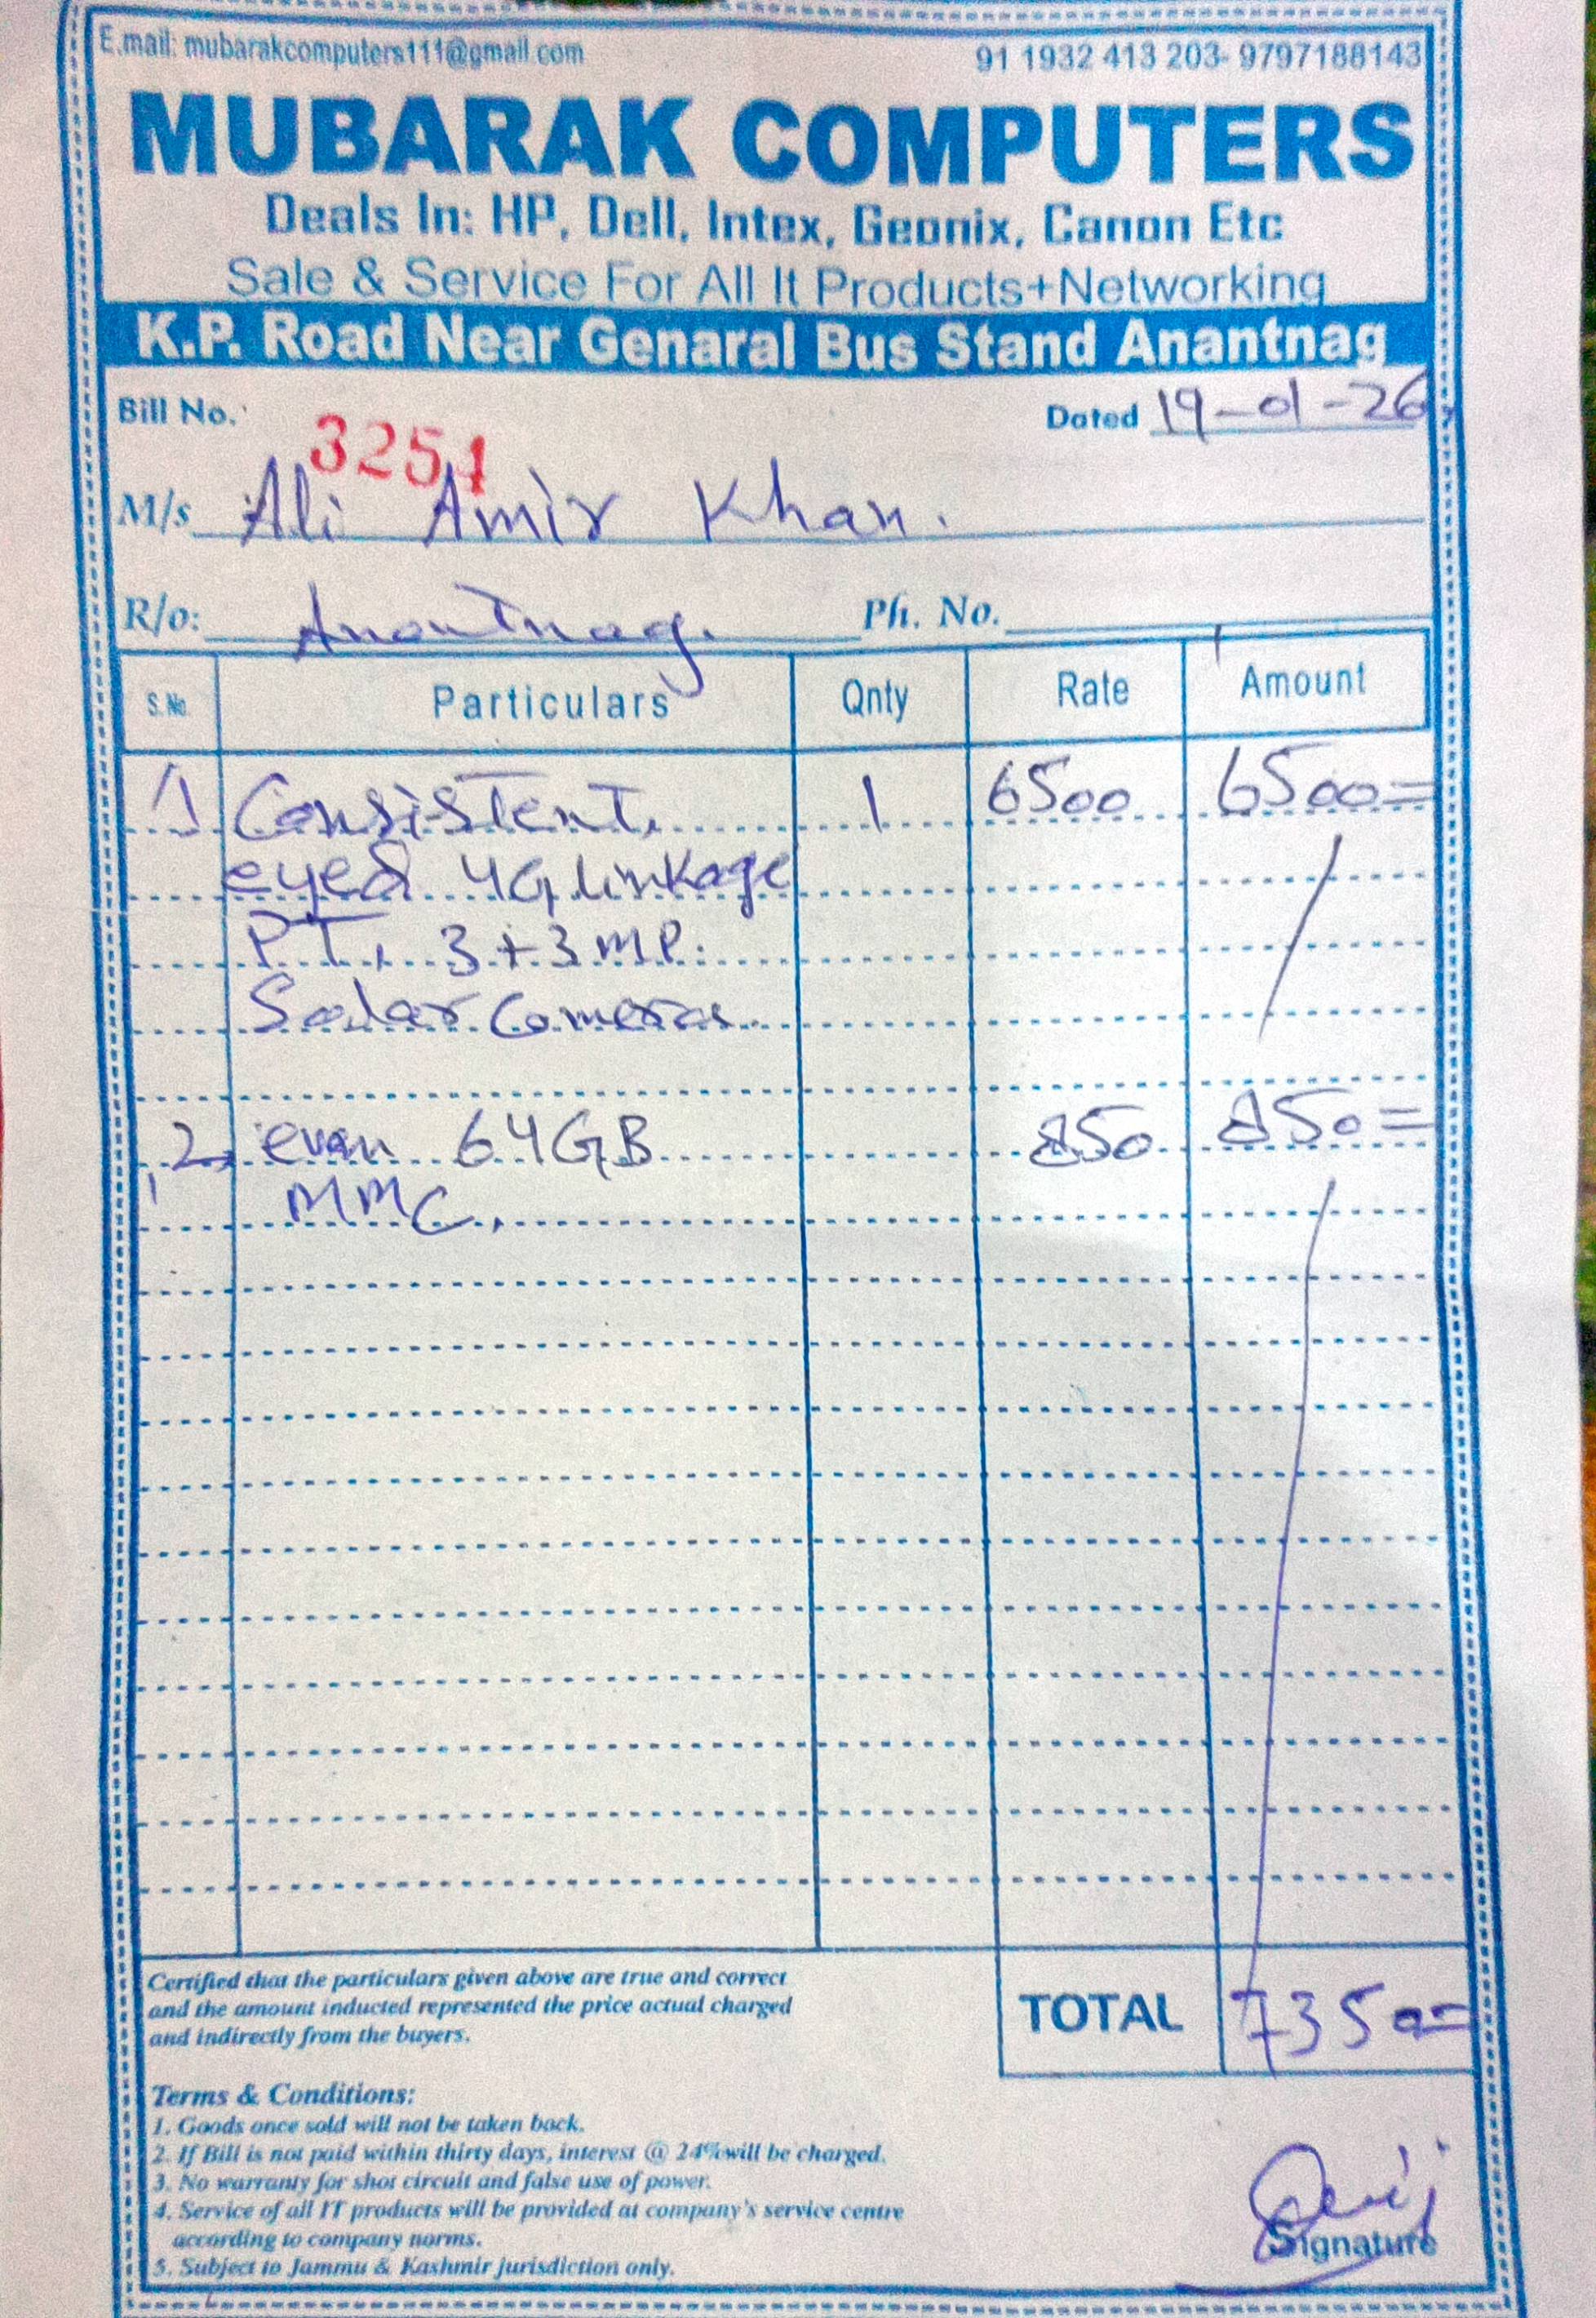 E.mail: mubarakcomputers111@gmail.com 91 1932 413 203- 9797188143
MUBARAK COMPUTERS
Deals In: HP, Dell, Intex, Geonix, Canon Etc
Sale & Service For All It Products+Networking
K.P. Road Near Genaral Bus Stand Anantnag
Bill No. 3251 Dated 19-01-26
M/s Ali Amir Khan.
R/o: Anantnag. Ph. No.
S.No. Particulars Qnty Rate Amount
1 Consistent 1 6500 6500=
4G Linkage
PT, 3+3MP.
Solar Cameras.
2, evm 64GB 850 850=
MMC.
Certified that the particulars given above are true and correct
and the amount inducted represented the price actual charged
and indirectly from the buyers.
TOTAL 7350=
Terms & Conditions:
1. Goods once sold will not be taken back.
2. If Bill is not paid within thirty days, interest @ 24% will be charged.
3. No warranty for shot circuit and false use of power.
4. Service of all IT products will be provided at company's service centre
according to company norms.
5. Subject to Jammu & Kashmir jurisdiction only.
Signature